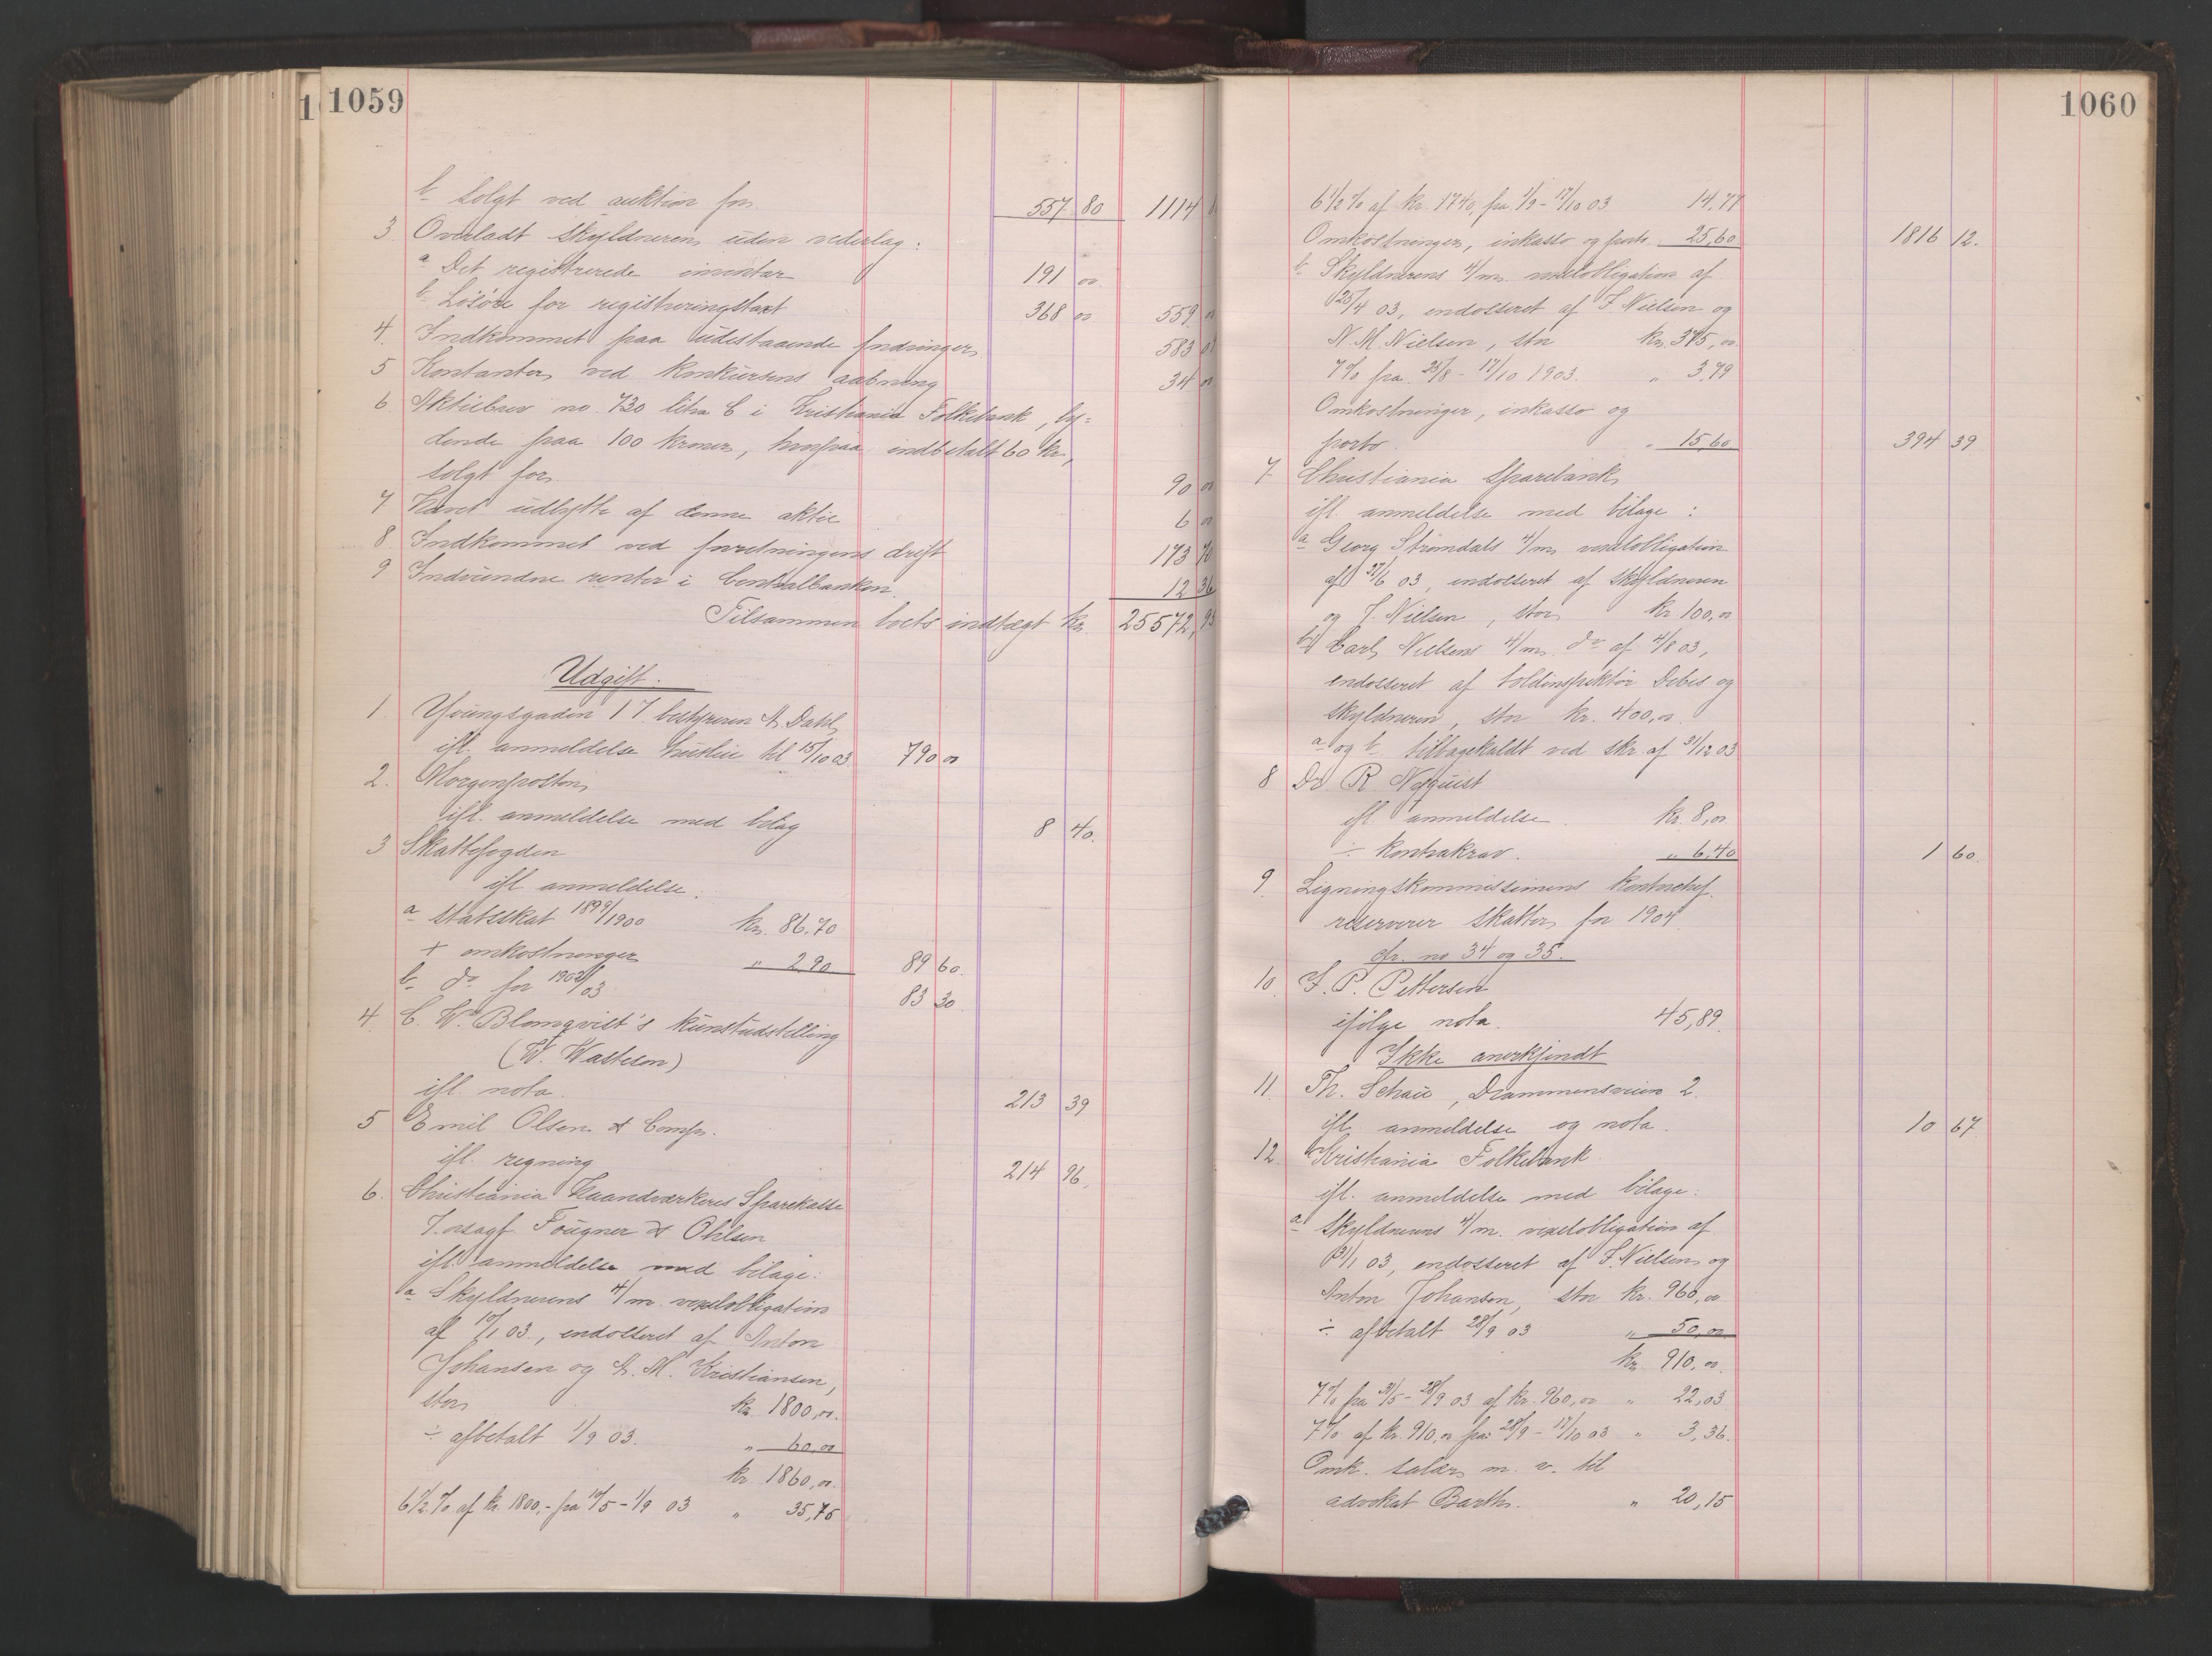 1059
b. Solgt ved auktion for 557 80 1114
3 Overladt skyldneren uden vederlag:
a Det registrerede inventar 191 00
b. Løsøre for registreringstaxt 368 00 559
4. Indkommet paa udestaaende fordringer 583
5 Kontanter ved konkursens aabning 34 00
6 Aktiebrev no. 730 litra C i Kristiania Folkebank, ly=
dende paa 100 kroner, hvorpaa indbetalt 60 kr,
solgt for 90 00
7 Hævet udbytte af denne aktie 6 00
8 Indkommet ved forretningens drift 173 70
9 Indvundne renter i Centralbanken 12 36
Tilsammen boets indtægt kr. 25572,93
Udgift.
1 Youngsgaden 17 bestyreren A. Dahl
ifl. anmeldelse husleie til 15/10 03. 790 00
2. Morgenposten
ifl. anmeldelse med bilag 8 40.
3 Skattefogden
ifl anmeldelse:
a statsskat 1899/1900 kr. 86,70
+ omkostninger " 2,90 89 60.
b. do for 1902/03 83 30.
4. C. W. Blomqvist's kunstudstilling
(W. Wasteson)
ifl. nota. 213 39
5 Emil Olsen & Comp.
ifl. regning 214 96.
6. Christiania Haandværkeres Sparekasse
v. osagf. Fougner & Ohlsen
ifl. anmeldelse med bilage:
a Skyldnerens 4/m. vexelobligation
af 10/1 03., endosseret af Anton
Johansen og A. M. Kristiansen,
stor kr. 1800,00.
÷ afbetalt 1/9 03. " 60,00
kr. 1860,00.
6 1/2 % af kr. 1800,- fra 10/5 - 1/9 03 " 35,75
1060
6 1/2 % af kr. 1740, fra 1/9 - 17/10 03 14,77
Omkostninger, inkasso og porto 25,60 1816 12.
b. Skyldnerens 4/m. vexelobligation af
25/4 03, endosseret af J. Nielsen og
N. M. Nielsen, stor kr. 375,00.
7 % fra 25/8 - 17/10 1903. " 3,79
Omkostninger, inkasso og
porto. " 15,60 394 39
7. Christiania Sparebank,
ifl. anmeldelse med bilage:
a Georg Strømdals 4/m vexelobligation
af 27/6 03, endosseret af skyldneren
og J. Nielsen, stor kr 100,00
b) Carl Nielsens 4/m. do af 4/8 03,
endosseret af toldinspektør Debes og
skyldneren, stor kr. 400,00.
a og b. tilbagekaldt ved skr. af 31/12 03
8 Dr R. Nyquist
ifl. anmeldelse. kr. 8,00
÷ kontrakrav. " 6,40 1 60.
9. Ligningskommissionens kontorchef.
reserverer skatter for 1904
cfr. no 34 og 35.
10. J. P. Pettersen
ifølge nota. 45,89.
Ikke anerkjendt
11. Th. Schau, Drammensveien 2.
ifl. anmeldelse og nota. 10 67
12. Kristiania Folkebank.
ifl. anmeldelse med bilage:
a skyldnerens 4/m. vexelobligation af
31/1 03, endosseret af J. Nielsen og
Anton Johansen, stor kr. 960,00
÷ afbetalt 28/9 03 " 50,00
kr. 910,00.
7 % fra 31/5 - 28/9 03 af kr. 960,00 " 22,03
7 % af kr. 910,00 fra 28/9 - 17/10 03 " 3,36.
Omk. salær m. v. til
advokat Barth. " 20,15